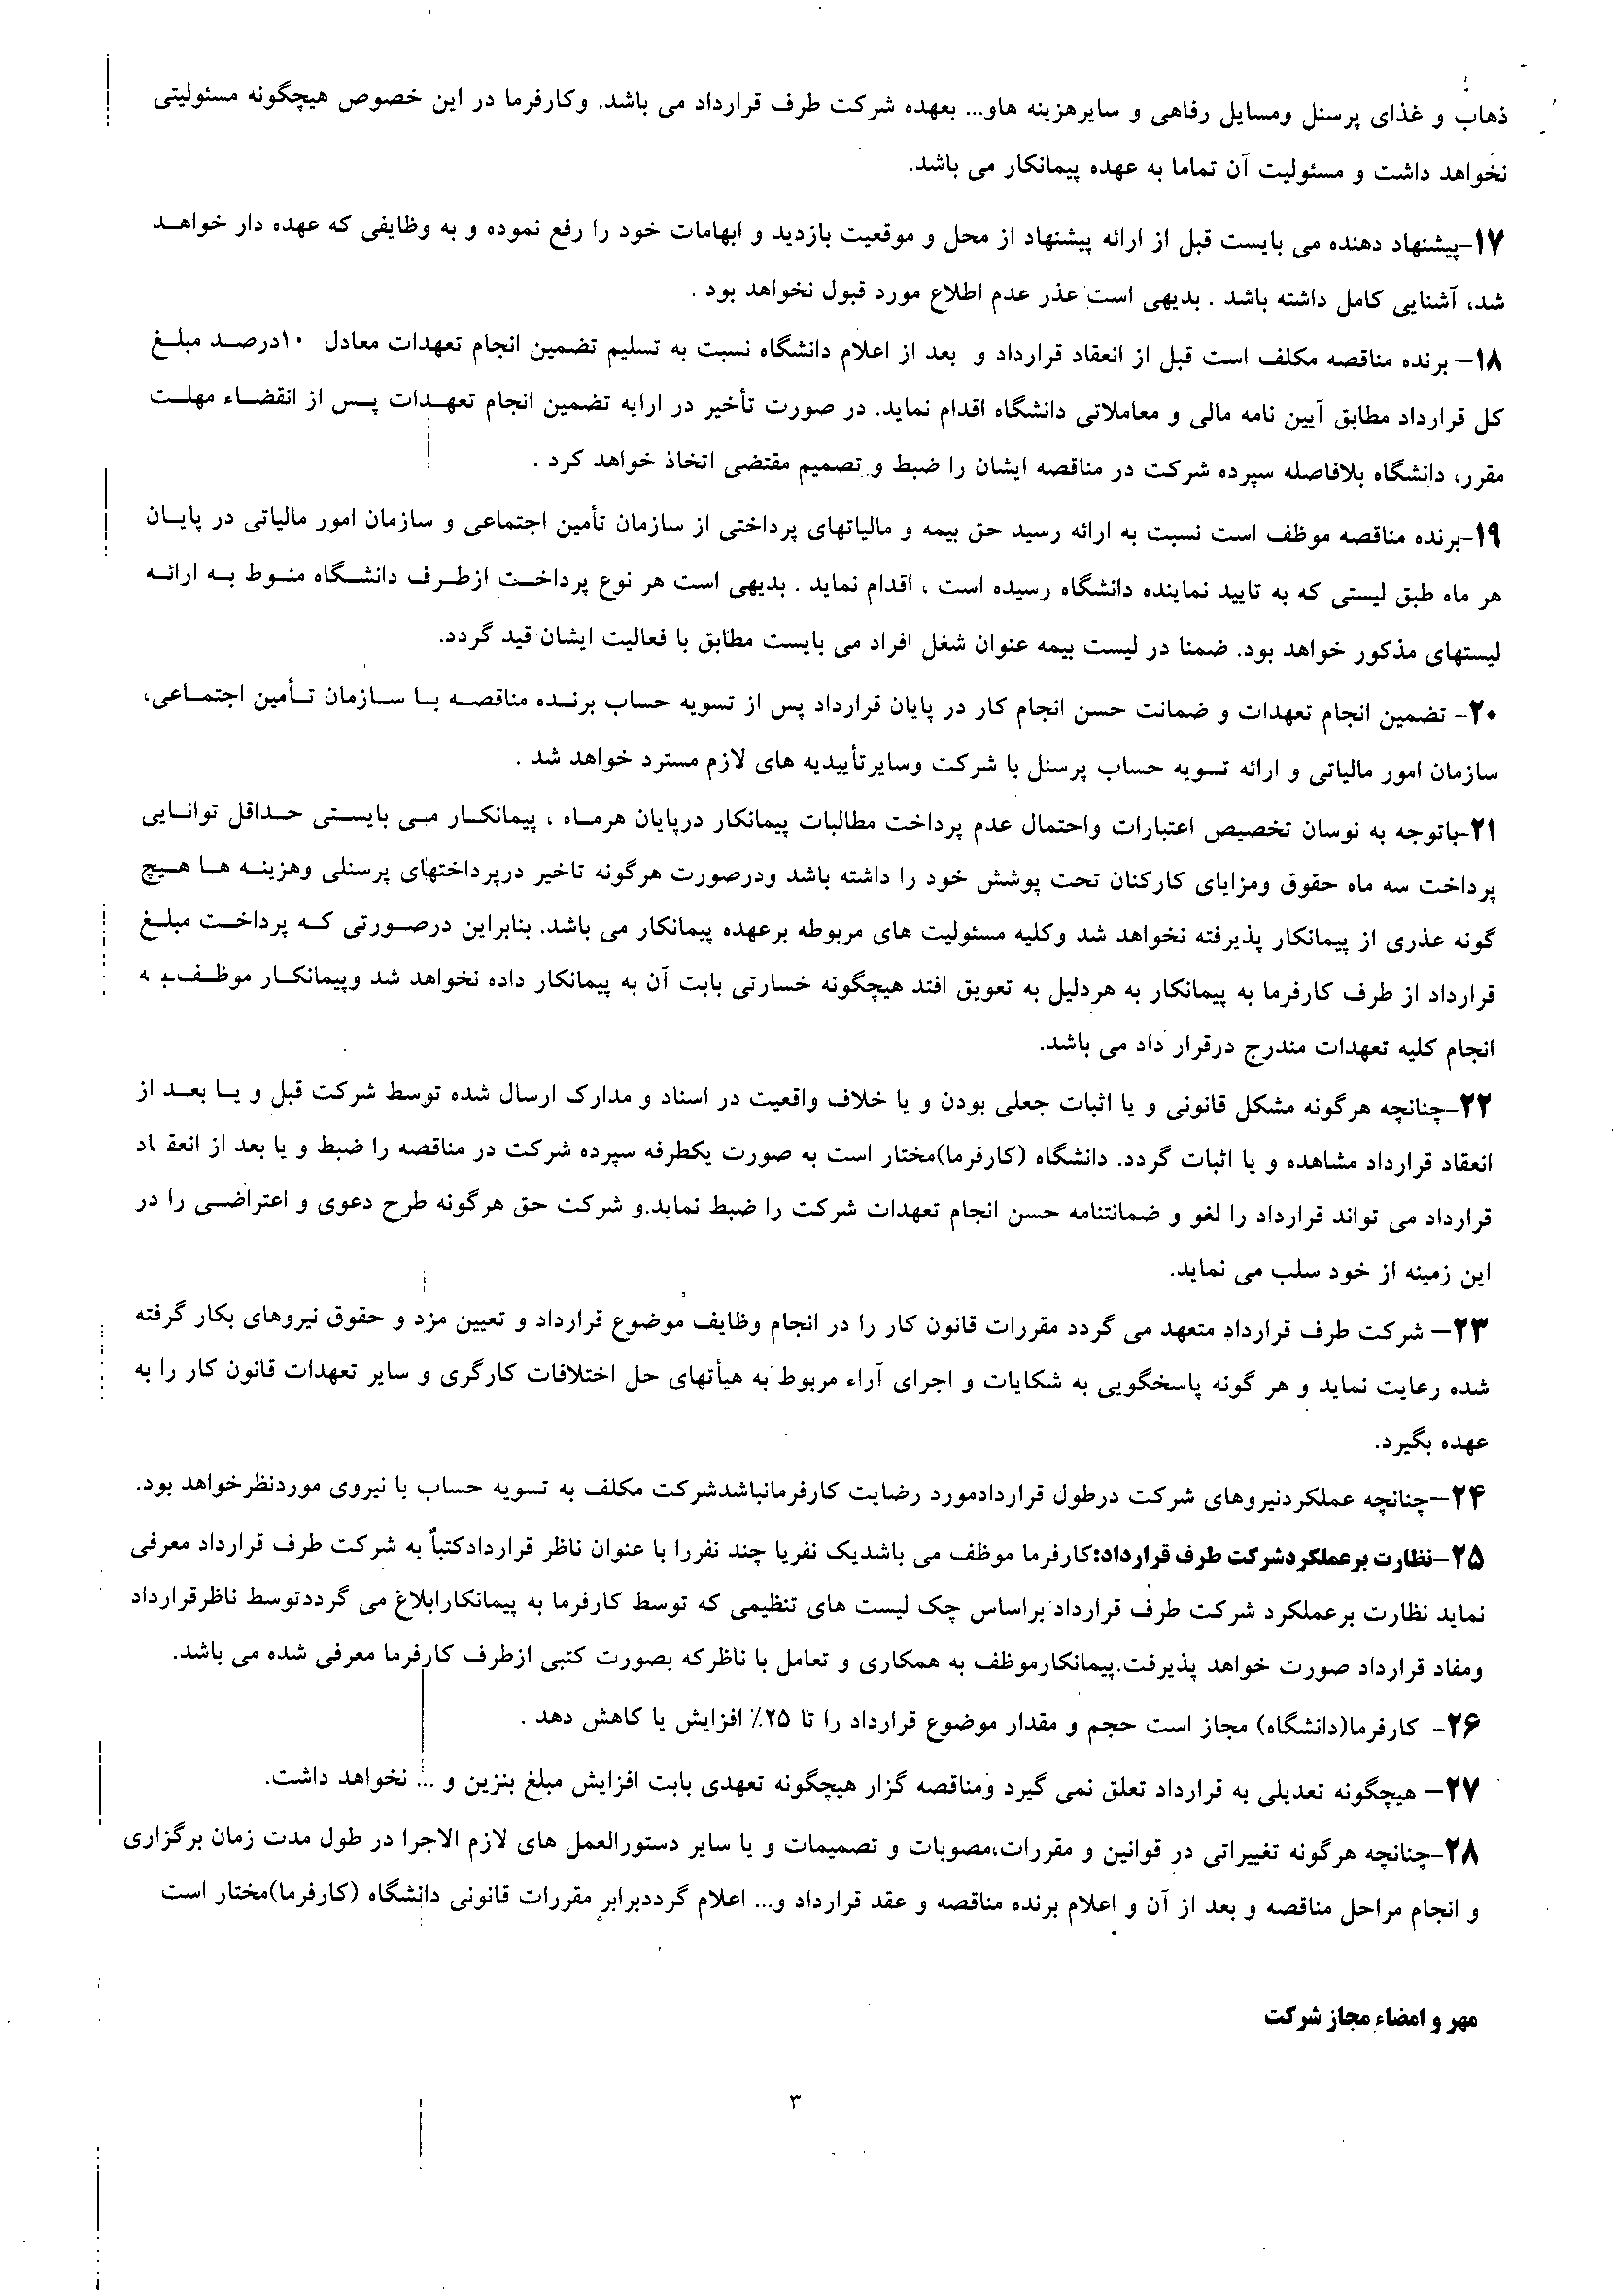 ذهاب و غذای پرسنل ومسایل رفاهی و سایرهزینه هاو... بعهده شرکت طرف قرارداد می باشد. وکارفرما در این خصوص هیچگونه مسئولیتی
نخواهد داشت و مسئولیت آن تماما به عهده پیمانکار می باشد.
۱۷-پیشنهاد دهنده می بایست قبل از ارائه پیشنهاد از محل و موقعیت بازدید و ابهامات خود را رفع نموده و به وظایفی که عهده دار خواهد
شد، آشنایی کامل داشته باشد . بدیهی است عذر عدم اطلاع مورد قبول نخواهد بود .
۱۸- برنده مناقصه مکلف است قبل از انعقاد قرارداد و بعد از اعلام دانشگاه نسبت به تسلیم تضمین انجام تعهدات معادل ۱۰درصد مبلغ
کل قرارداد مطابق آیین نامه مالی و معاملاتی دانشگاه اقدام نماید. در صورت تأخیر در ارایه تضمین انجام تعهدات پس از انقضاء مهلت
مقرر، دانشگاه بلافاصله سپرده شرکت در مناقصه ایشان را ضبط و تصمیم مقتضی اتخاذ خواهد کرد .
۱۹-برنده مناقصه موظف است نسبت به ارائه رسید حق بیمه و مالیاتهای پرداختی از سازمان تأمین اجتماعی و سازمان امور مالیاتی در پایان
هر ماه طبق لیستی که به تایید نماینده دانشگاه رسیده است ، اقدام نماید . بدیهی است هر نوع پرداخت ازطرف دانشگاه منوط به ارائه
لیستهای مذکور خواهد بود. ضمنا در لیست بیمه عنوان شغل افراد می بایست مطابق با فعالیت ایشان قید گردد.
۲۰- تضمین انجام تعهدات و ضمانت حسن انجام کار در پایان قرارداد پس از تسویه حساب برنده مناقصه با سازمان تأمین اجتماعی،
سازمان امور مالیاتی و ارائه تسویه حساب پرسنل با شرکت وسایرتأییدیه های لازم مسترد خواهد شد .
۲۱-باتوجه به نوسان تخصیص اعتبارات واحتمال عدم پرداخت مطالبات پیمانکار درپایان هرماه ، پیمانکار می بایستی حداقل توانایی
پرداخت سه ماه حقوق ومزایای کارکنان تحت پوشش خود را داشته باشد ودرصورت هرگونه تاخیر درپرداختهای پرسنلی وهزینه ها هیچ
گونه عذری از پیمانکار پذیرفته نخواهد شد وکلیه مسئولیت های مربوطه برعهده پیمانکار می باشد. بنابراین درصورتی که پرداخت مبلغ
قرارداد از طرف کارفرما به پیمانکار به هردلیل به تعویق افتد هیچگونه خسارتی بابت آن به پیمانکار داده نخواهد شد وپیمانکار موظف به
انجام کلیه تعهدات مندرج درقرار داد می باشد.
۲۲-چنانچه هرگونه مشکل قانونی و یا اثبات جعلی بودن و یا خلاف واقعیت در اسناد و مدارک ارسال شده توسط شرکت قبل و یا بعد از
انعقاد قرارداد مشاهده و یا اثبات گردد. دانشگاه (کارفرما)مختار است به صورت یکطرفه سپرده شرکت در مناقصه را ضبط و یا بعد از انعقاد
قرارداد می تواند قرارداد را لغو و ضمانتنامه حسن انجام تعهدات شرکت را ضبط نماید.و شرکت حق هرگونه طرح دعوی و اعتراضی را در
این زمینه از خود سلب می نماید.
۲۳- شرکت طرف قرارداد متعهد می گردد مقررات قانون کار را در انجام وظایف موضوع قرارداد و تعیین مزد و حقوق نیروهای بکار گرفته
شده رعایت نماید و هر گونه پاسخگویی به شکایات و اجرای آراء مربوط به هیأتهای حل اختلافات کارگری و سایر تعهدات قانون کار را به
عهده بگیرد.
۲۴-چنانچه عملکردنیروهای شرکت درطول قراردادمورد رضایت کارفرمانباشدشرکت مکلف به تسویه حساب با نیروی موردنظرخواهد بود.
۲۵-نظارت برعملکردشرکت طرف قرارداد:کارفرما موظف می باشدیک نفریا چند نفررا با عنوان ناظر قراردادکتباً به شرکت طرف قرارداد معرفی
نماید نظارت برعملکرد شرکت طرف قرارداد براساس چک لیست های تنظیمی که توسط کارفرما به پیمانکارابلاغ می گرددتوسط ناظرقرارداد
ومفاد قرارداد صورت خواهد پذیرفت.پیمانکارموظف به همکاری و تعامل با ناظرکه بصورت کتبی ازطرف کارفرما معرفی شده می باشد.
۲۶- کارفرما(دانشگاه) مجاز است حجم و مقدار موضوع قرارداد را تا ۲۵٪ افزایش یا کاهش دهد .
۲۷- هیچگونه تعدیلی به قرارداد تعلق نمی گیرد ومناقصه گزار هیچگونه تعهدی بابت افزایش مبلغ بنزین و ... نخواهد داشت.
۲۸-چنانچه هرگونه تغییراتی در قوانین و مقررات،مصوبات و تصمیمات و یا سایر دستورالعمل های لازم الاجرا در طول مدت زمان برگزاری
و انجام مراحل مناقصه و بعد از آن و اعلام برنده مناقصه و عقد قرارداد و... اعلام گرددبرابر مقررات قانونی دانشگاه (کارفرما)مختار است
مهر و امضاء مجاز شرکت
۳